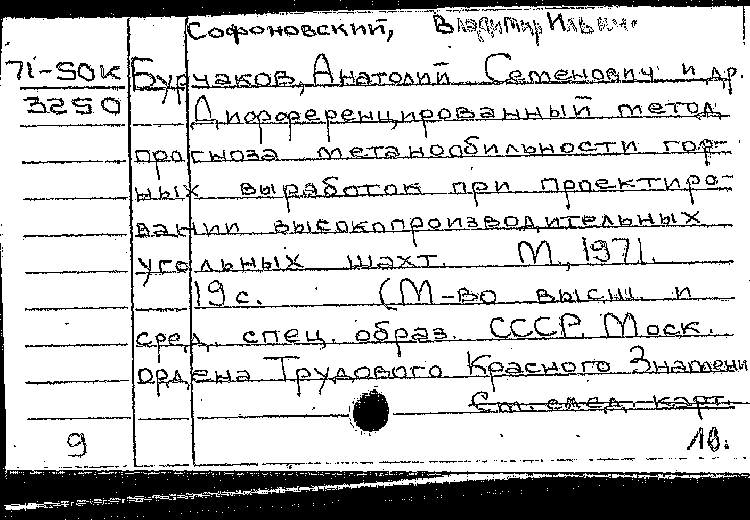 Софоновский, Владимир Ильич.
71-50К Бурчаков, Анатолий Семенович и др.
3250 Дифференцированный метод
прогноза метанообильности гор-
ных выработок при проектиро-
вании высокопроизводительных
угольных шахт. М., 1971.
19 с. (М-во высш. и
сред. спец. образ. СССР. Моск.
ордена Трудового Красного Знамени
См. след. карт.
9 10.